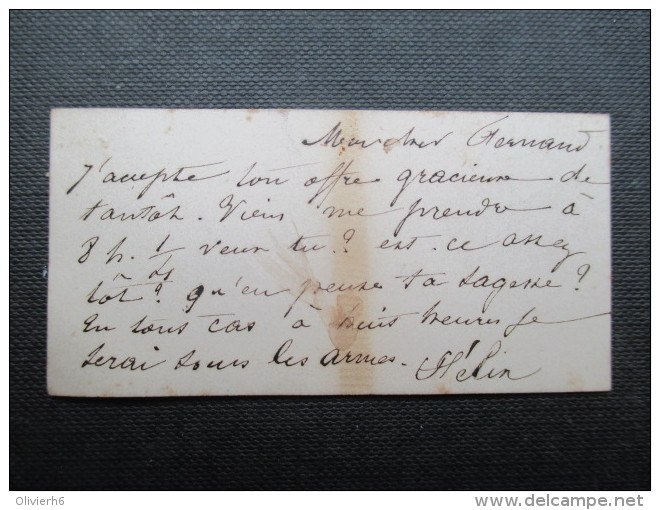 Mon cher Fernand
J'accepte ton offre gracieuse de
tantôt. Viens me prendre à
8 h. 1/2 veux tu? est-ce assez
tôt? qu'en pense ta sagesse?
En tous cas à huit heures je
serai sous les armes. Hélin
Olivierh6
delcampe.net